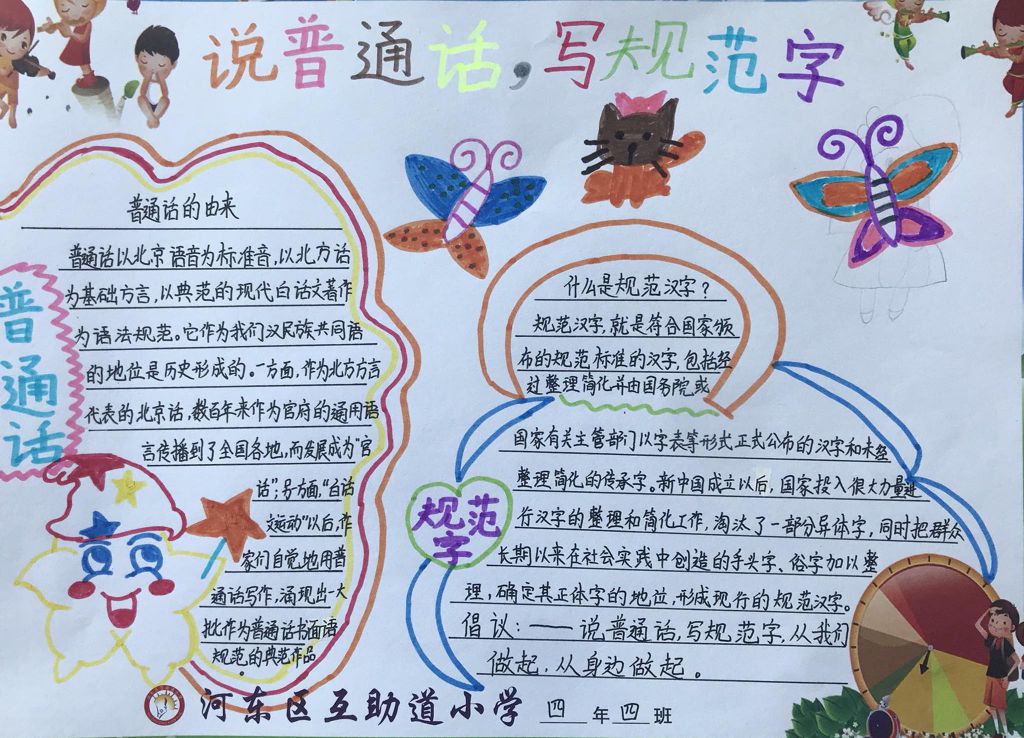 说普通话,写规范字
普通话的由来
普通话以北京语音为标准音,以北方话
为基础方言,以典范的现代白话文著作
为语法规范。它作为我们汉民族共同语
的地位是历史形成的。一方面,作为北方方言
代表的北京话,数百年来作为官府的通用语
言传播到了全国各地,而发展成为“官
话”;另方面,“白话
文运动”以后,作
家们自觉地用普
通话写作,涌现出一大
批作为普通话书面语
规范的典范作品。
普通话
什么是规范汉字?
规范汉字,就是符合国家颁
布的规范标准的汉字,包括经
过整理简化并由国务院或
国家有关主管部门以字表等形式正式公布的汉字和未经
整理简化的传承字。新中国成立以后,国家投入很大力量进
行汉字的整理和简化工作,淘汰了一部分异体字,同时把群众
长期以来在社会实践中创造的手头字、俗字加以整
理,确定其正体字的地位,形成现行的规范汉字。
倡议:——说普通话,写规范字,从我们
做起,从身边做起。
规范
字
河东区互助道小学 四年四班